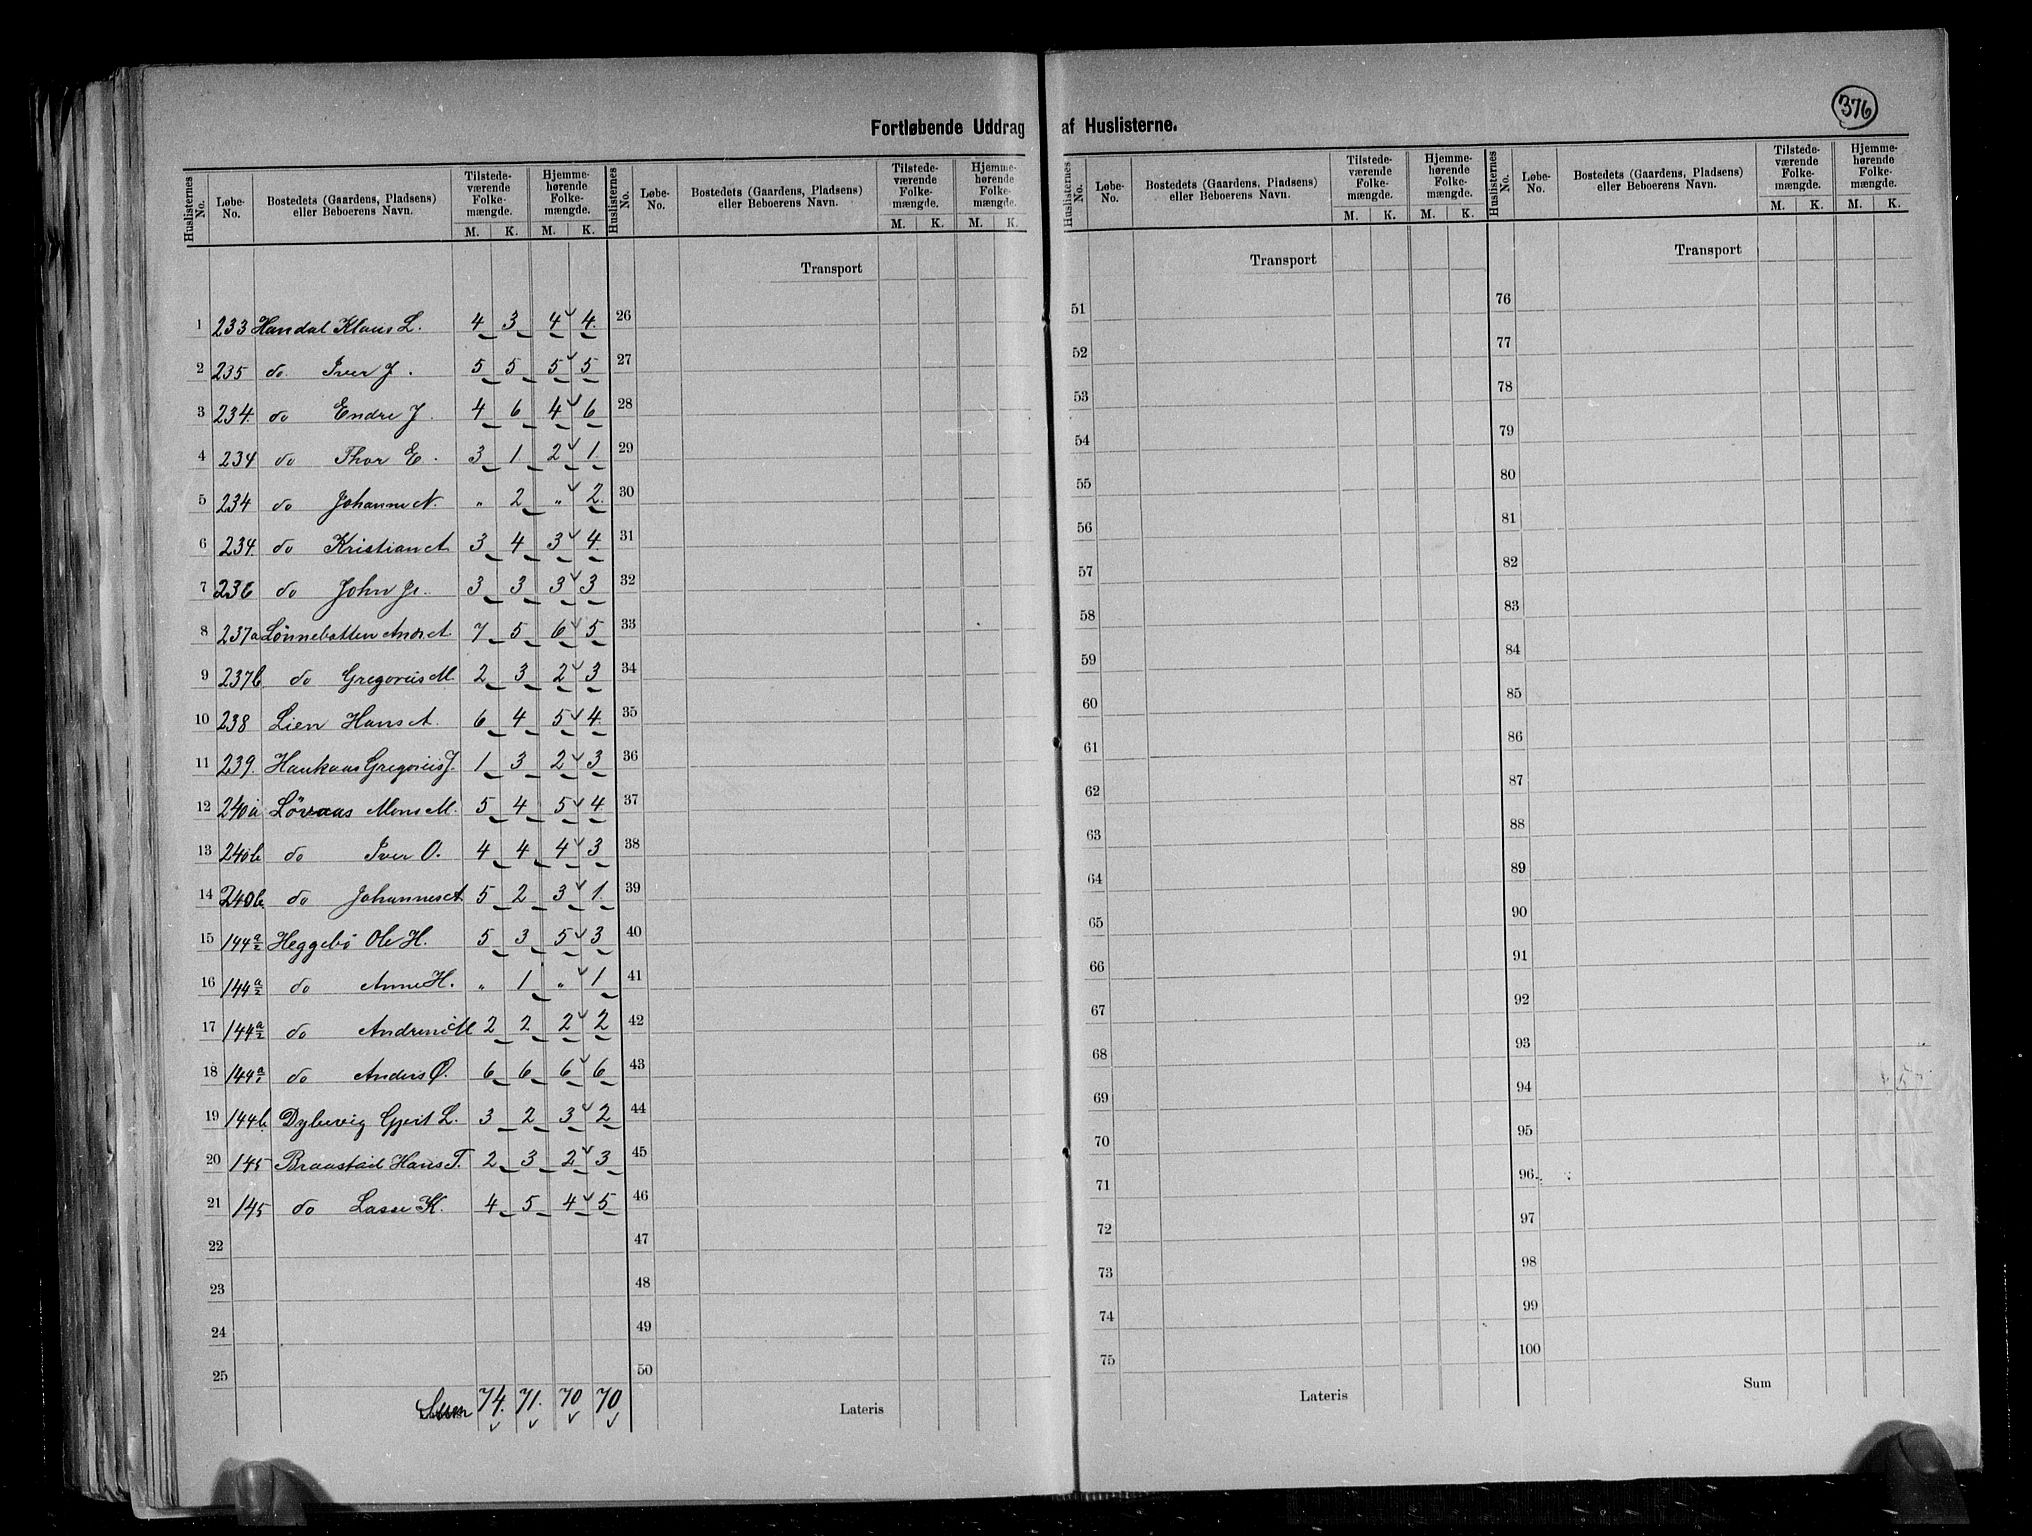 376
Fortløbende Uddrag af Huslisterne.
Huslisternes No. Løbe-No. Bostedets (Gaardens, Pladsens) eller Beboerens Navn. Tilstede-værende Folke-mængde. M. K. Hjemme-hørende Folke-mængde. M. K.
1 233 Handal Klaus L. 4 3 4 4
2 235 do. Iver J. 5 5 5 5
3 234. do Endre J. 4 6 4 6
4 234 do Thor E. 3 1 2 1
5 234 do Johanne N. " 2 " 2
6 234 do Kristian A. 3 4 3 4
7 236 do John Jr. 3 3 3 3
8 237a Lönnebotten Andr. A. 7 5 6 5
9 237b do Gregorius M. 2 3 2 3
10 238 Lien Hans A. 6 4 5 4
11 239. Haukaas Gregorius J. 1 3 2 3
12 240a Lövaas Mons M. 5 4 5 4
13 240b do Iver O. 4 4 4 3
14 240b do Johannes A. 5 2 3 1
15 144 a/2 Heggebö Ole H. 5 3 5 3
16 144 a/2 do Anne H. " 1 " 1
17 144 a/2 do Andreine M 2 2 2 2
18 144 a/1 do Anders O. 6 6 6 6
19 144b Dybevig Gjert L. 3 2 3 2
20 145 Braastad Hans T. 2 3 2 3
21 145 do Lasse K. 4 5 4 5
22
23
24
25
Sum 74. 71. 70 70
Huslisternes No. Løbe-No. Bostedets (Gaardens, Pladsens) eller Beboerens Navn. Tilstede-værende Folke-mængde. M. K. Hjemme-hørende Folke-mængde. M. K.
Transport
26
27
28
29
30
31
32
33
34
35
36
37
38
39
40
41
42
43
44
45
46
47
48
49
50
Lateris
Huslisternes No. Løbe-No. Bostedets (Gaardens, Pladsens) eller Beboerens Navn. Tilstede-værende Folke-mængde. M. K. Hjemme-hørende Folke-mængde. M. K.
Transport
51
52
53
54
55
56
57
58
59
60
61
62
63
64
65
66
67
68
69
70
71
72
73
74
75
Lateris
Huslisternes No. Løbe-No. Bostedets (Gaardens, Pladsens) eller Beboerens Navn. Tilstede-værende Folke-mængde. M. K. Hjemme-hørende Folke-mængde. M. K.
Transport
76
77
78
79
80
81
82
83
84
85
86
87
88
89
90
91
92
93
94
95
96
97
98
99
100
Sum